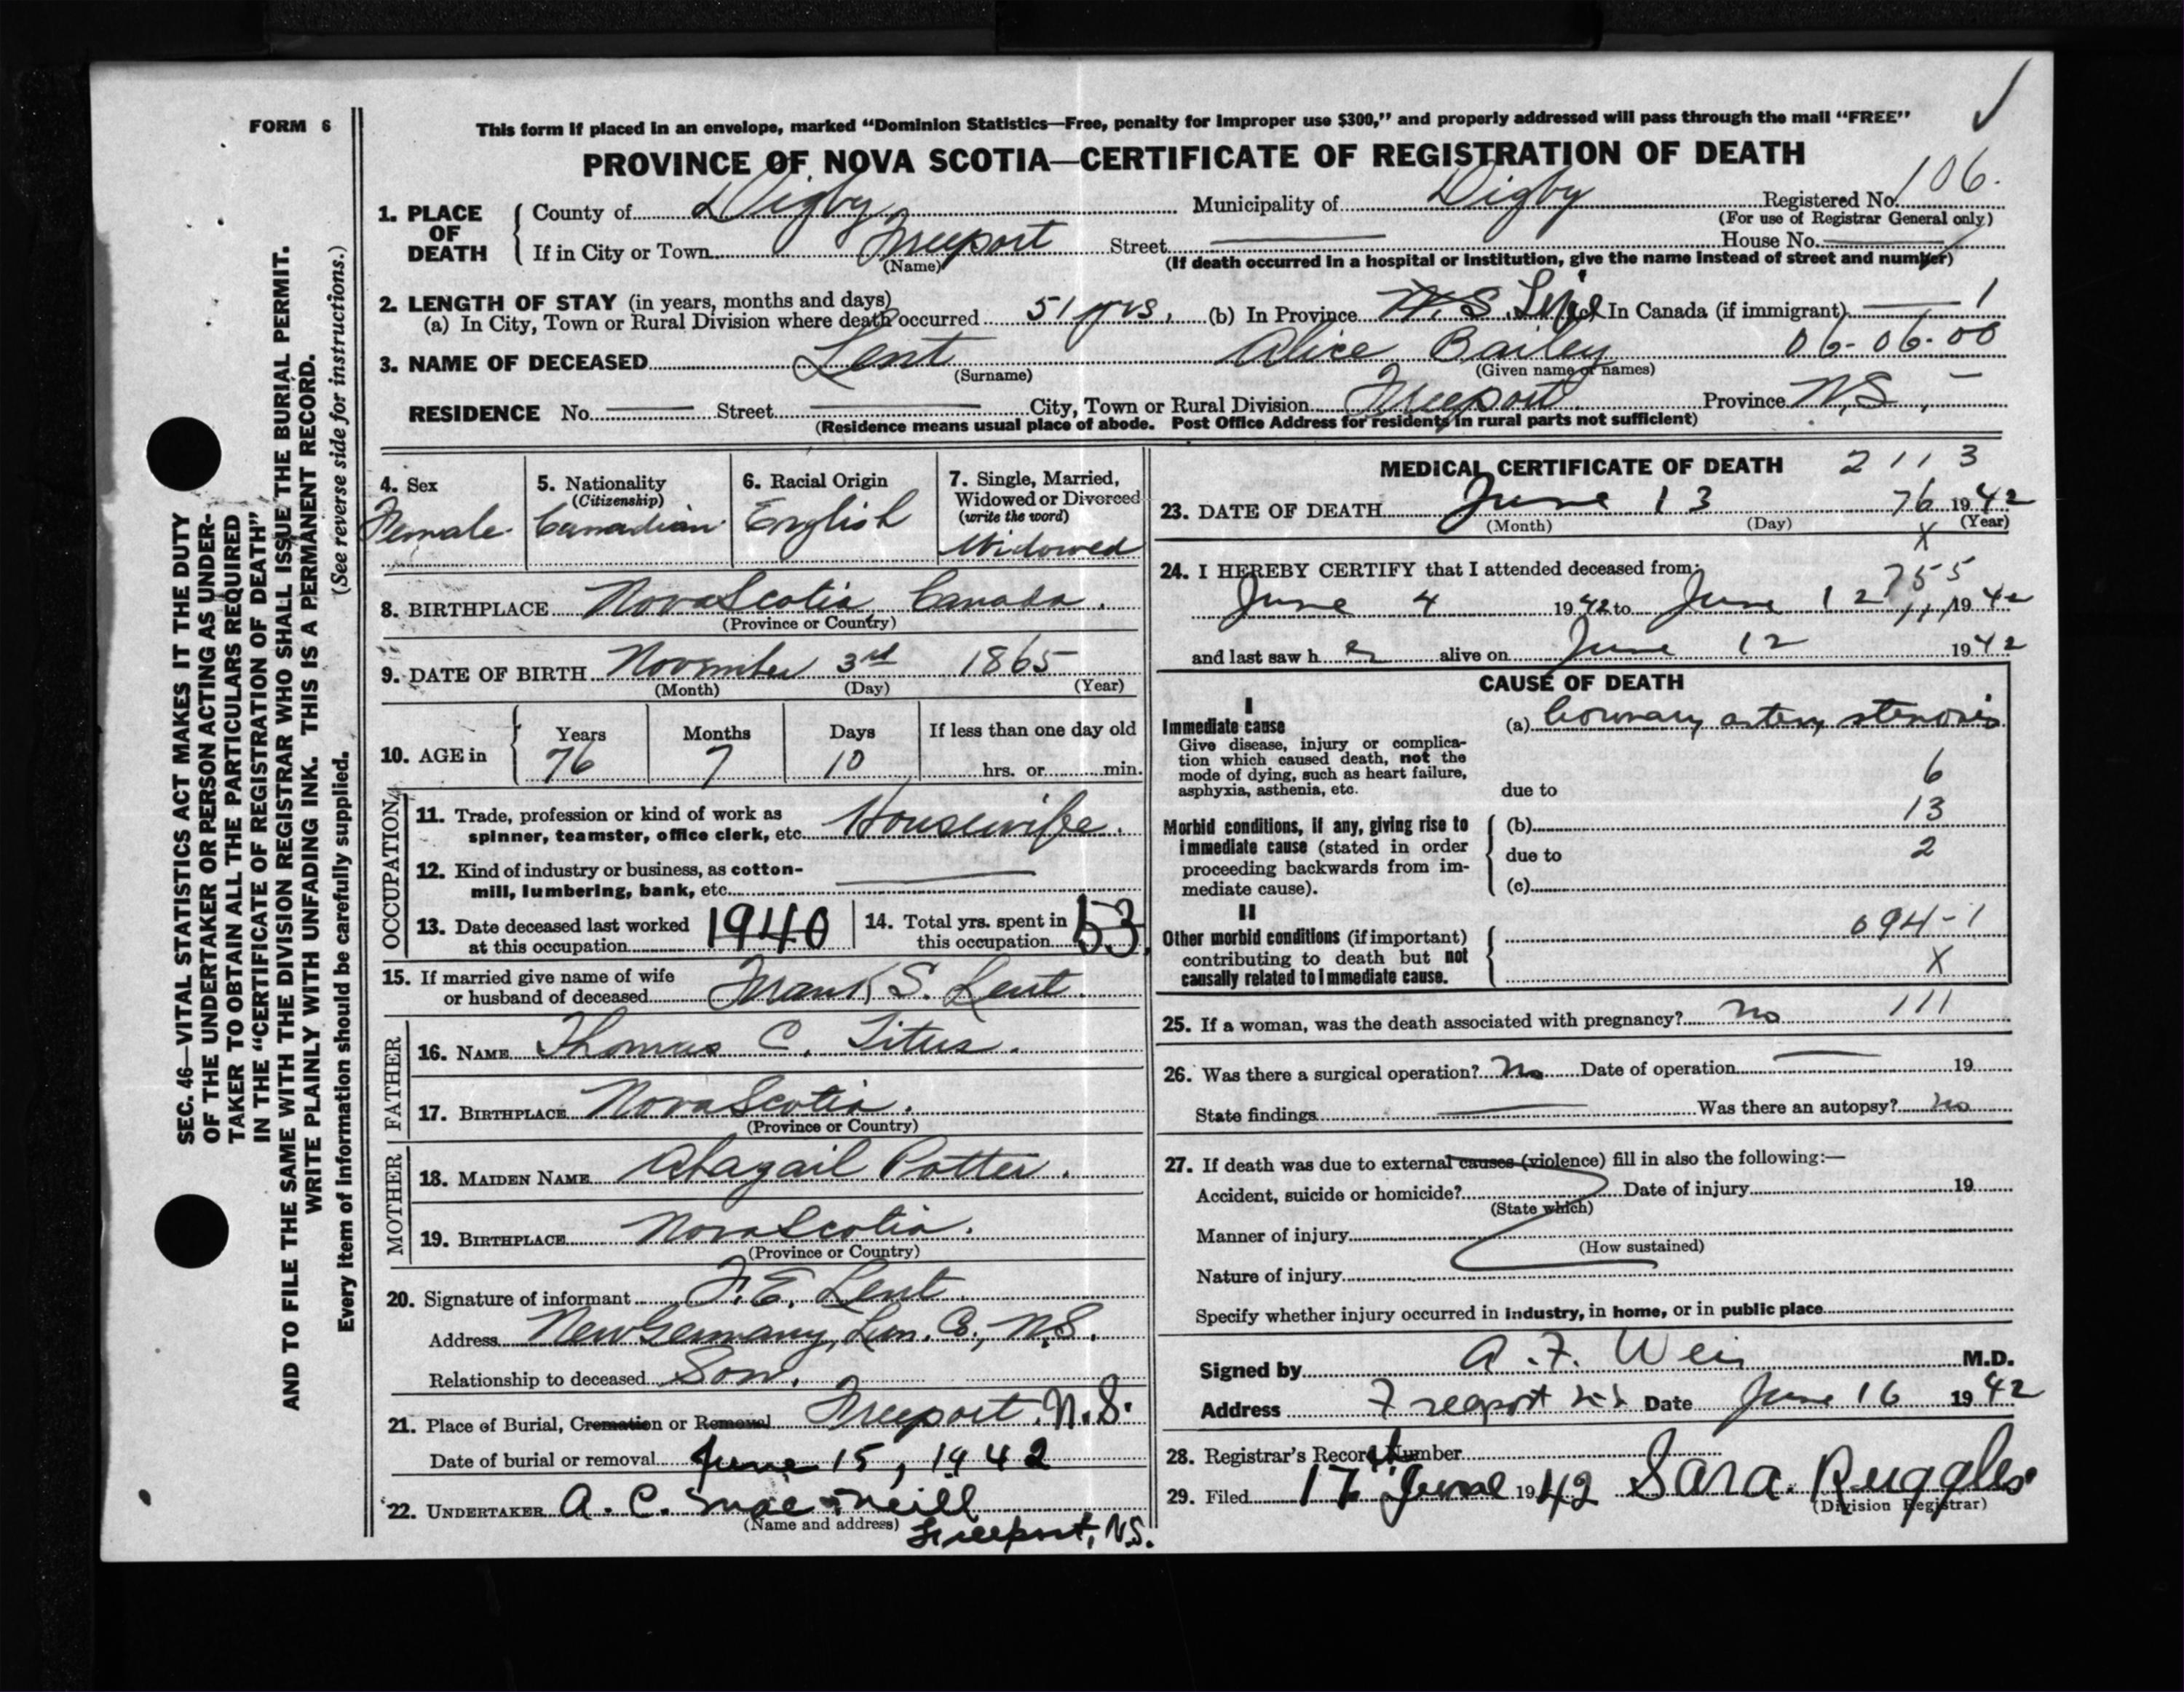 FORM 6
This form if placed in an envelope, marked “Dominion Statistics—Free, penalty for improper use $300,” and properly addressed will pass through the mail “FREE”
PROVINCE OF NOVA SCOTIA—CERTIFICATE OF REGISTRATION OF DEATH
1. PLACE OF DEATH County of Digby Municipality of Digby Registered No. 106.
(For use of Registrar General only)
If in City or Town Freeport Street — House No. —
(Name) (If death occurred in a hospital or institution, give the name instead of street and number)
2. LENGTH OF STAY (in years, months and days)
(a) In City, Town or Rural Division where death occurred 51 yrs. (b) In Province N.S. Life In Canada (if immigrant) — 1
3. NAME OF DECEASED Lent Alice Bailey 06-06-00
(Surname) (Given name or names)
RESIDENCE No. — Street — City, Town or Rural Division Freeport Province N.S. —
(Residence means usual place of abode. Post Office Address for residents in rural parts not sufficient)
4. Sex Female
5. Nationality (Citizenship) Canadian
6. Racial Origin English
7. Single, Married, Widowed or Divorced (write the word) Widowed
8. BIRTHPLACE Nova Scotia, Canada.
(Province or Country)
9. DATE OF BIRTH November 3rd 1865
(Month) (Day) (Year)
10. AGE in Years 76 Months 7 Days 10 If less than one day old
hrs. or min.
OCCUPATION
11. Trade, profession or kind of work as
spinner, teamster, office clerk, etc. Housewife.
12. Kind of industry or business, as cotton-
mill, lumbering, bank, etc. —
13. Date deceased last worked at this occupation 1940
14. Total yrs. spent in this occupation 53
15. If married give name of wife
or husband of deceased Frank S. Lent.
FATHER
16. NAME Thomas C. Titus.
17. BIRTHPLACE Nova Scotia.
(Province or Country)
MOTHER
18. MAIDEN NAME Abagail Potter.
19. BIRTHPLACE Nova Scotia.
(Province or Country)
20. Signature of informant F. E. Lent
Address New Germany, Lun. Co., N.S.
Relationship to deceased Son.
21. Place of Burial, Cremation or Removal Freeport. N.S.
Date of burial or removal June 15, 1942
22. UNDERTAKER A. C. MacNeill
(Name and address) Freeport, N.S.
MEDICAL CERTIFICATE OF DEATH 2113
23. DATE OF DEATH June 13 76 1942
(Month) (Day) (Year)
X
24. I HEREBY CERTIFY that I attended deceased from:
755
June 4 1942 to June 12 1942
and last saw her alive on June 12 1942
CAUSE OF DEATH
I
Immediate cause (a) Coronary artery stenosis
Give disease, injury or complica-
tion which caused death, not the
mode of dying, such as heart failure,
asphyxia, asthenia, etc. due to 6
13
Morbid conditions, if any, giving rise to (b)
immediate cause (stated in order due to 2
proceeding backwards from im-
mediate cause). (c)
II
Other morbid conditions (if important) 094-1
contributing to death but not X
causally related to immediate cause.
25. If a woman, was the death associated with pregnancy? no 111
26. Was there a surgical operation? No Date of operation — 19
State findings — Was there an autopsy? no
27. If death was due to external causes (violence) fill in also the following:—
Accident, suicide or homicide? Date of injury 19
(State which)
Manner of injury
(How sustained)
Nature of injury
Specify whether injury occurred in industry, in home, or in public place
Signed by A. F. Weir M.D.
Address Freeport N.S. Date June 16 1942
28. Registrar’s Record Number
29. Filed 17 June 1942 Sara Ruggles.
(Division Registrar)
SEC. 46—VITAL STATISTICS ACT MAKES IT THE DUTY
OF THE UNDERTAKER OR PERSON ACTING AS UNDER-
TAKER TO OBTAIN ALL THE PARTICULARS REQUIRED
IN THE “CERTIFICATE OF REGISTRATION OF DEATH”
AND TO FILE THE SAME WITH THE DIVISION REGISTRAR WHO SHALL ISSUE THE BURIAL PERMIT.
WRITE PLAINLY WITH UNFADING INK. THIS IS A PERMANENT RECORD.
Every item of information should be carefully supplied. (See reverse side for instructions.)